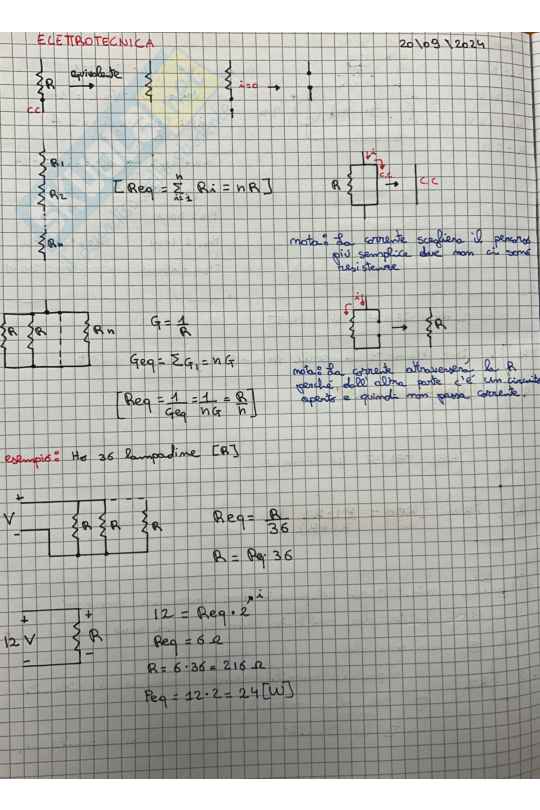 ELETTROTECNICA
20\09\2024
R equivalente i=0
CC
R1
R2
Rn
[Req = Σ Ri = nR]
n
i=1
i
R c.c. C.C
nota: La corrente sceglierà il percorso
più semplice dove non ci sono
resistenze
R R Rn
G = 1/R
Geq = ΣG1 = nG
[Req = 1/Geq = 1/nG = R/n]
i
R
nota: La corrente attraverserà la R
perché dall'altra parte c'è un circuito
aperto e quindi non passa corrente.
esempio: Ho 36 lampadine [R]
+
V
-
R R R
Req = R/36
R = Req · 36
+ +
12 V R
- -
12 = Req · 2 i
Req = 6 Ω
R = 6 · 36 = 216 Ω
Peq = 12 · 2 = 24 [W]